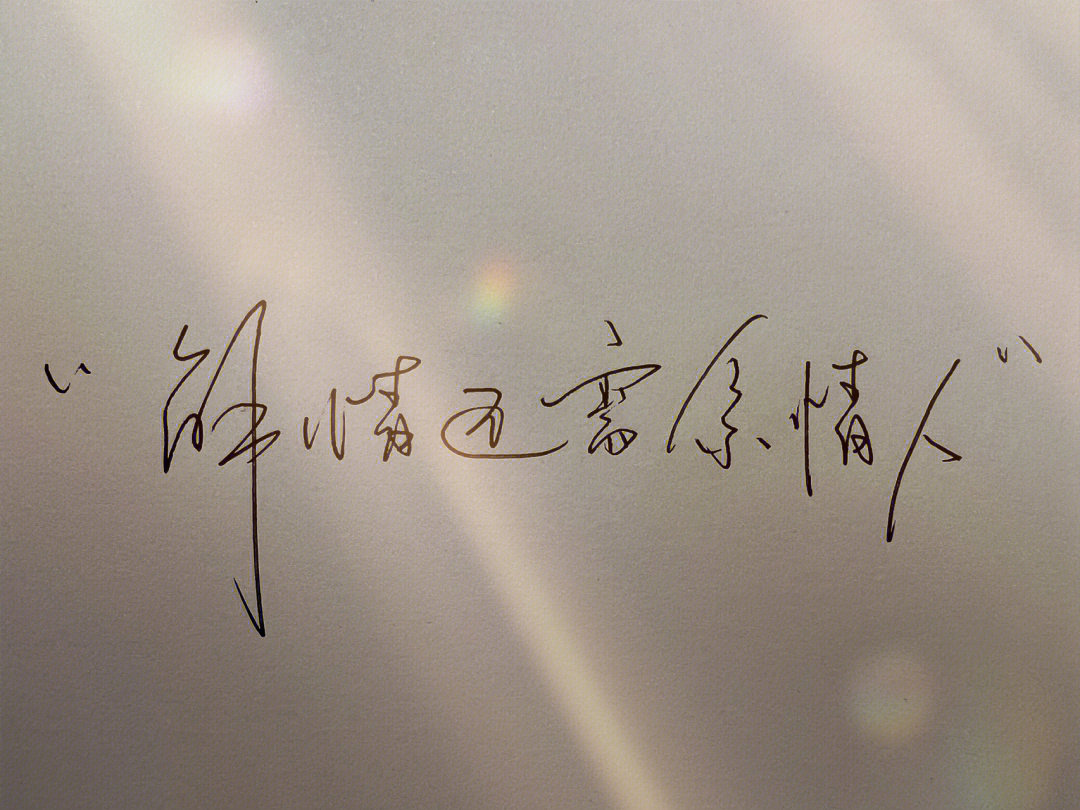 “解情还需系情人”